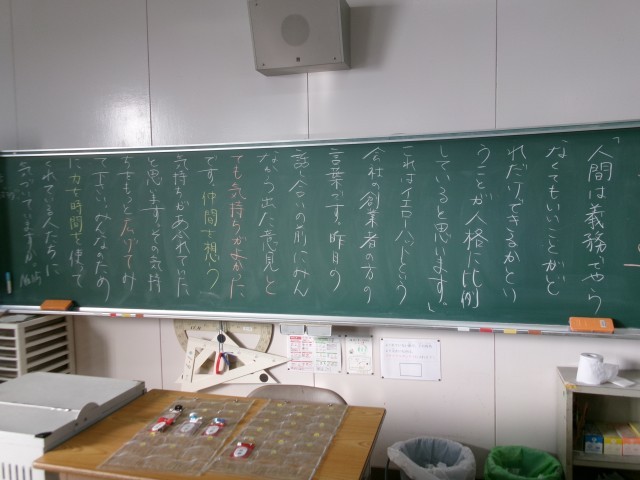 「人間は義務でやら
なくてもいいことがど
れだけできるかとい
うことが人格に比例
していると思います。」
これはイエローハットという
会社の創業者の方の
言葉です。昨日の
話し合いの前にみん
なから出た意見と
ても気持ちがよかった
です。仲間を想う
気持ちがあふれていた
と思います。その気持
ちをもっと広げてみ
て下さい。みんなのため
に力や時間を使って
くれている人たちに
気づいていますか